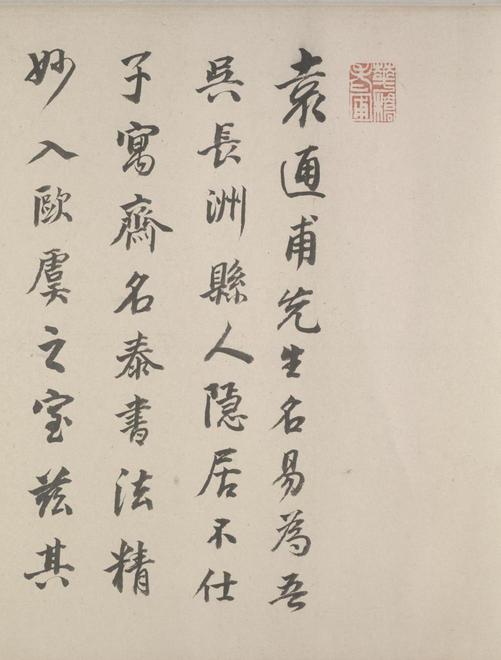 袁通甫先生名易為吾
吳長洲縣人隱居不仕
子寓齋名泰書法精
妙入歐虞之室茲其